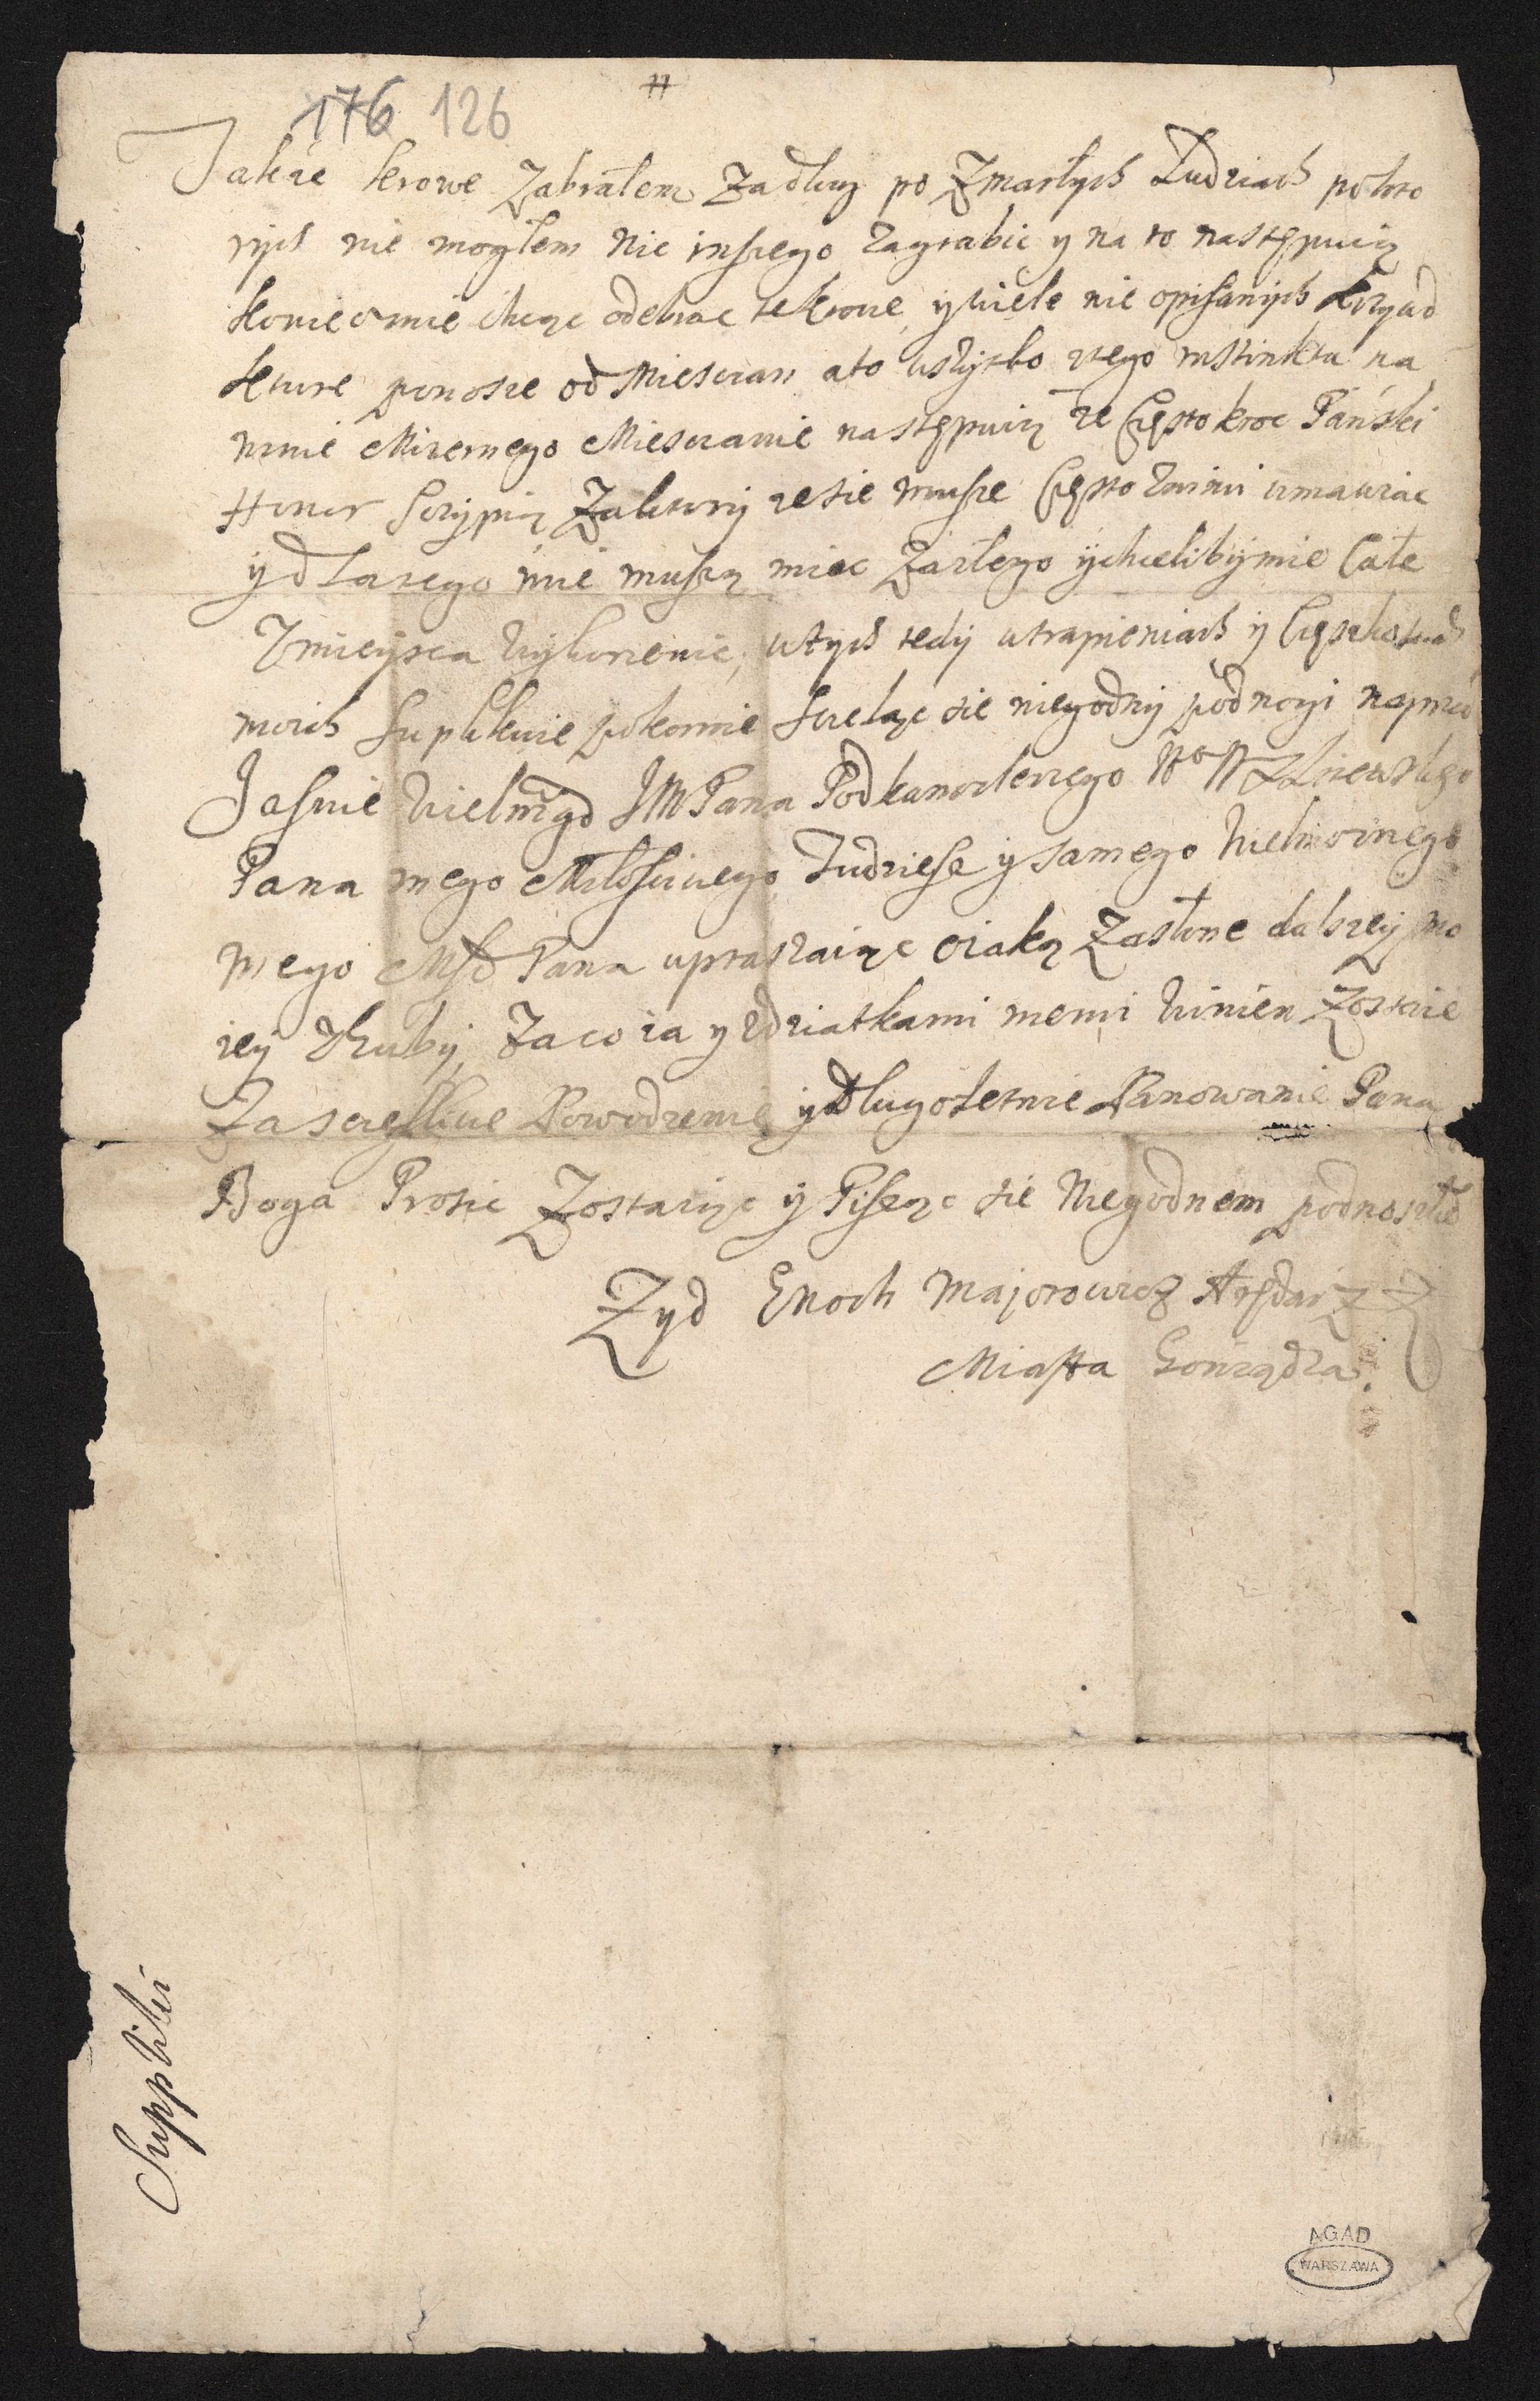 #
176 126
Takze krowe Zabrałem Zadług po Zmarłych Ludziach pokto
rych nie mogłem nic inszego zagrabic y na to następuią
koniecznie chcąc odebrac te krowe, y wiele nie opisanych krzywd
kture ponosze od Miesczan ato wszytko ztego instinktu na
mnie Mizernego Miesczanie następuią ze Częstokroc Panski
Honor sczypią Zaktory ze sie musze Często znimi umawiac
y dlatego mie muszą miec Zazłego ychcielibymie Cale
Zmieysca Wykorzenic, wtych tedy utrapieniach y
moich supplikuie pokornie scieląc sie niegodny pod nogi naprzod
Jasnie Wielmgo JMPana Podkomorzego
Pana mego Miłosciwego Tudziesz y samego Wielmoznego
mego Msc Pana upraszaiąc oiaką Zasłone dalszey mo
iey Zguby Zaco ia y zdziatkami memi Winien Zostaie
Zasczesliwe Powodzenie y Długoletnie Panowanie Pana
Boga Prosic Zostaiąc y Pisząc sie Niegodnem
Zyd Enoch Majorowicz Arędarz
Miasta Goniądza.
Suppliki
AGAD
WARSZAWA